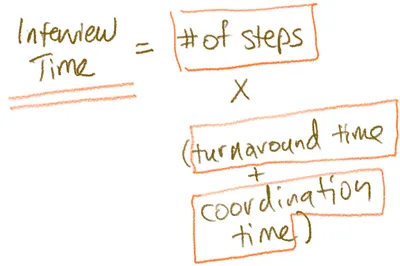 Interview
Time = # of steps
x
(turnaround time
+
coordination
time)